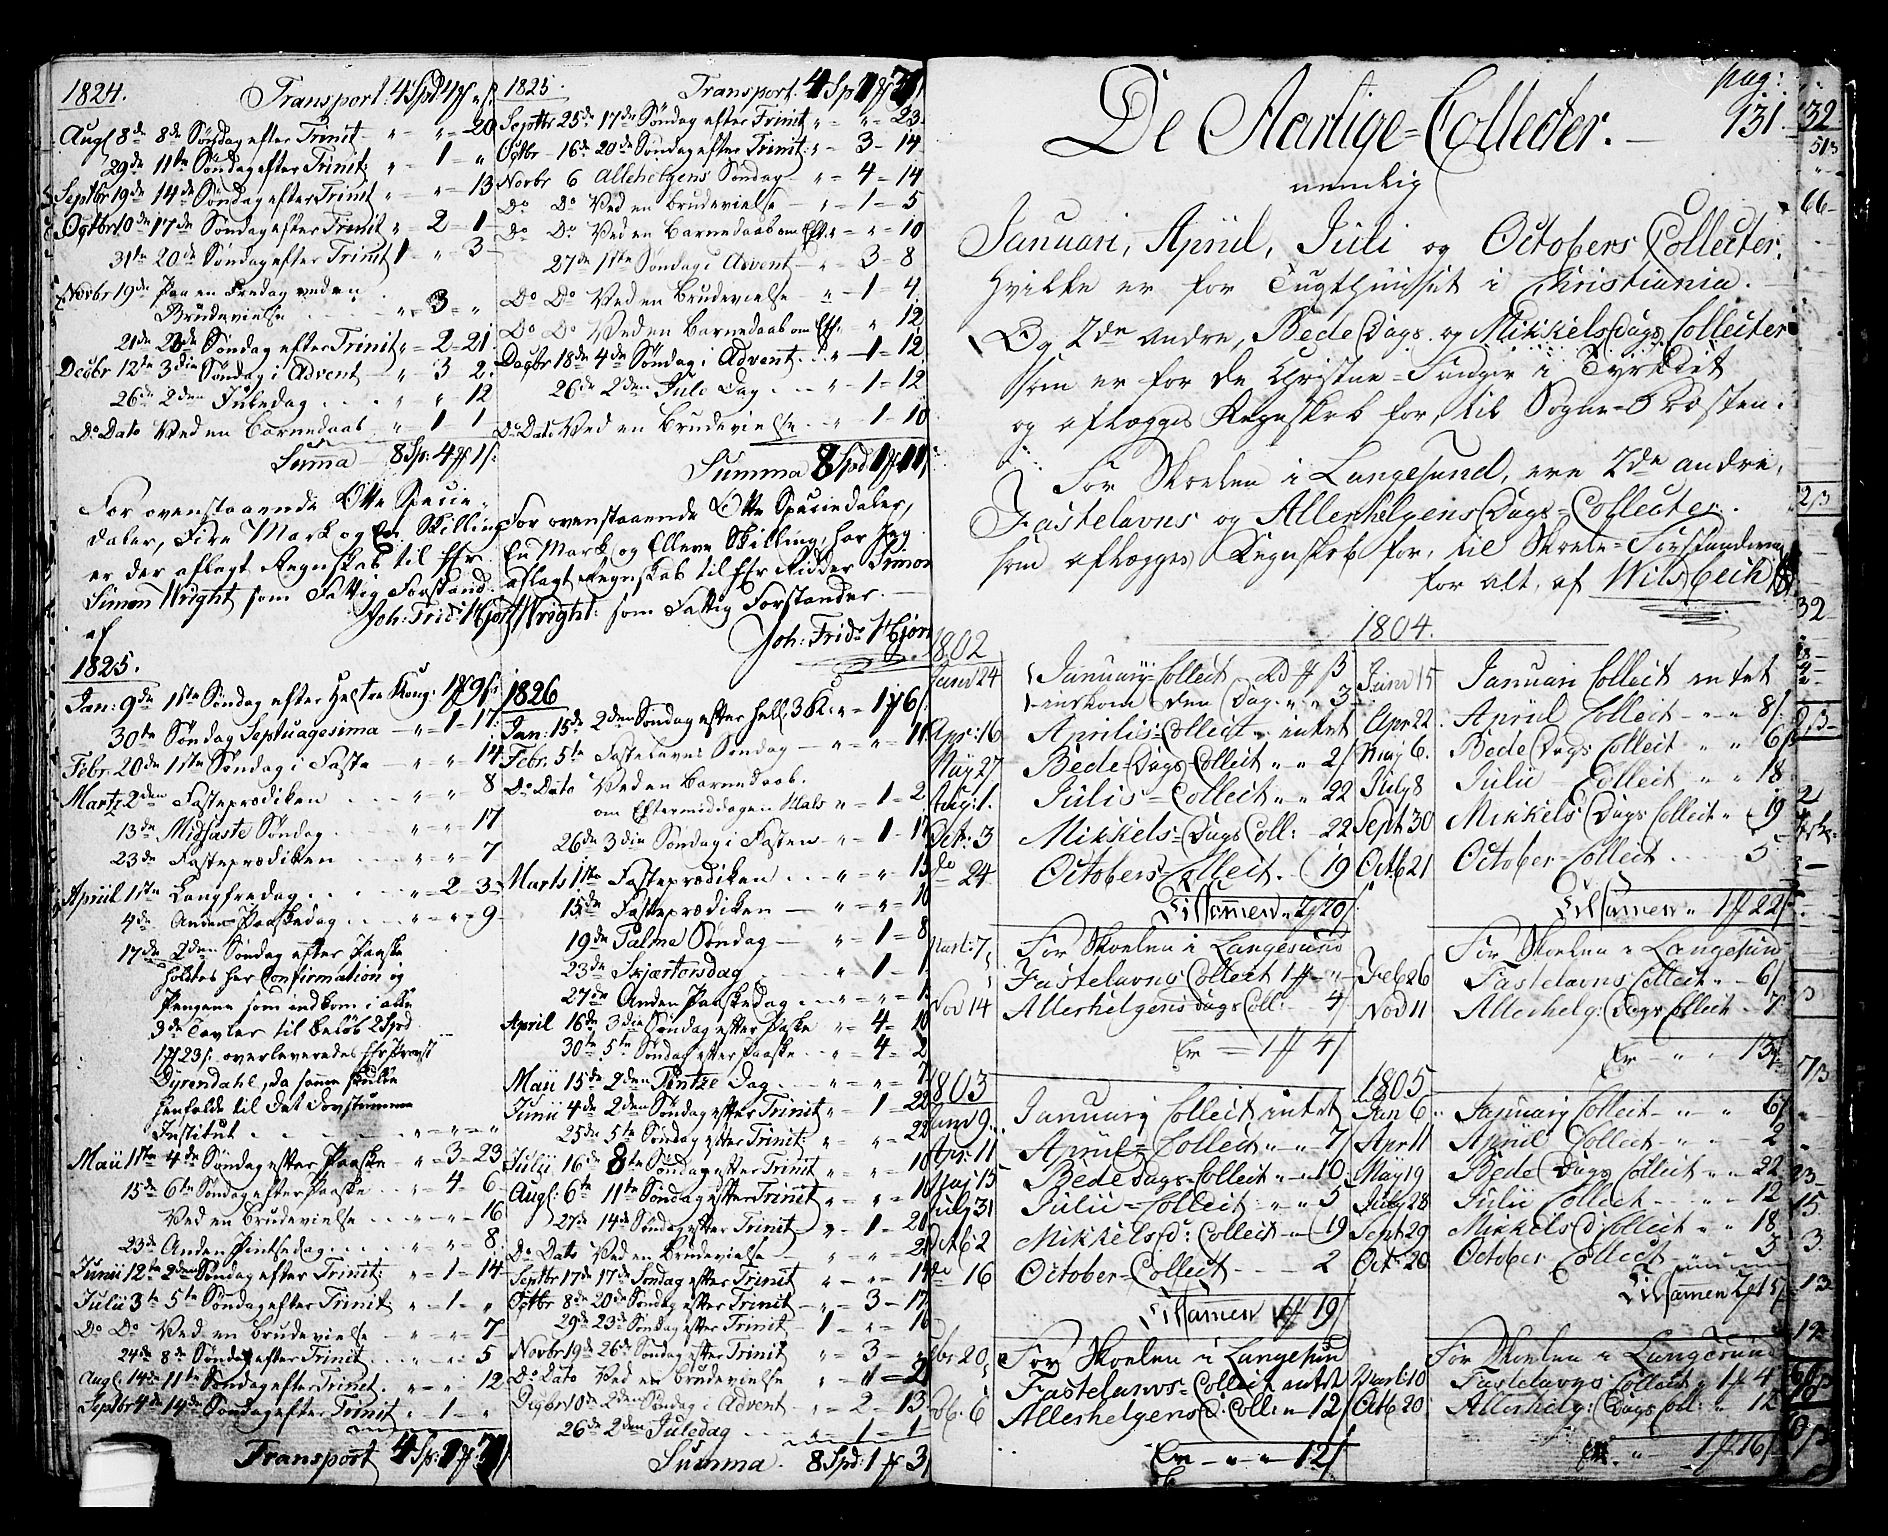 1824.
Transport: 4 Spd 4 ƒ " s.
Augl 8de 8de Søndag efter Trinit - " " = 20
29de 11te Søndag efter Trinit: " 1 = "
Septbr 19de 14de Søndag efter Trinit " " = 13
Octbr 10de 17de Søndag efter Trinit " = 2 = 1
31te 20de Søndag efter Trinit 1 " 3
Novbr 19de Paa en Fredag ved en
Brudevielse " = 3 = "
21de 23de Søndag efter Trinit " = 2 = 21
Decbr 12te 3die Søndag i Advent - " 3 2
26de 2den Juledag . . . . " " = 12
Do Dato Ved en Barnedaab " = 1 1
Summa - 8 Sp: 4 ƒ 1 s:
For ovenstaaende Otte Specie-
daler, Fire Mark og En Skilling
er der aflagt Regnskab til Hr
Simon Wright som Fattig Forstand:
af Joh: Frid: Hjort
1825.
Jan: 9de 1ste Søndag efter Hel: tre Kong: 1 ƒ 9 s:
30te Søndag Septuagesima - " = 1 = 17
Febr. 20de 1ste Søndag i Faste - " = " 14
Martz 2den Fasteprædiken . . . . " = " 8
13de Midfaste Søndag . . . " = " = 17
23de Fasteprædiken . . . . " = " = 7
April 1ste Langfredag . . . . " = 2 = 3
4de Anden Paaskedag . . . . " = " = 9
17de 2den Søndag efter Paaske
holtes her Confirmation og
Pengene som indkom i alle
3de Tavler til Beløb 2 Spd
1 ƒ 23 s: overleveredes Hr Provst
Dyrendahl, da samme skulde
henfalde til det Døvstumme
Institut . . . . " = " = "
Maii 1ste 4de Søndag efter Paaske - " = 3 = 23
15de 6te Søndag efter Paaske . . . " = 4 = 6
Ved en Brudevielse . . . " = " = 16
23de Anden Pintsedag . . . . " = " = 8
Junii 12te 2den Søndag efter Trinit: " = 1 = 14
Julii 3te 5te Søndag efter Trinit " = 1 = "
Do Do Ved en Brudevielse - " = " = 7
24de 8de Søndag efter Trinit . . " = " = 5
Augl: 14de 11te Søndag efter Trinit . " = " 12
Septbr 4de 14de Søndag efter Trinit " = 1 = "
Transport 4 Sp: 1 ƒ 7
1825.
Transport 4 Sp 1 ƒ
Septbr 25de 17de Søndag efter Trinit " = " = 23
Octbr - 16de 20de Søndag efter Trinit: " = 3 = 14
Novbr 6 Allehelgens Søndag " = 4 = 14
Do Do Ved en Brudevielse - " = 1 = 5
Do Do Ved en Barnedaab om Efter " = " = 10
27de 1ste Søndag i Advent - " = 3 = 8
Do Do Ved en Brudevielse - " = 1 = 4
Do Do Ved en Barnedaab om Eft: " " 12
Decbr 18de 4de Søndag i Advent . . " = 1 = 12
26de 2den Jule Dag . . . " = 1 = 12
Do Dato Ved en Brudevielse . . " 1 = 10
Summa 8 Spd 1 ƒ 11 s
For ovenstaaende Otte Speciedaler,
En Mark og Elleve Skilling, har Jeg
aflagt Regnskab til Hr Ridder Simon
Wright: som Fattig Forstander. -
Joh: Frid: Hjort
1826
Jan: 15de 2den Søndag efter hell: 3 K: " = 1 ƒ 6 s
Febr. 5te Fastelavns Søndag - " = " = 11
Do Dato Ved en Barnedaab
om Eftermiddagen " = 1 = 2
26de 3die Søndag i Fasten " = 1 = 17
Marts 1ste Fasteprædiken . . . " = " 15
15de Fasteprædiken - " = " = 10
19de Palma Søndag - " = 1 = 8
23de Skjærtorsdag . . " = 1 = 1
27de Anden Paaskedag . . . " = " = 1
April 16de 3die Søndag efter Paaske " = 4 = 10
30te 5te Søndag efter Paaske . . " = 4 = 2
Maii 15de 2den Pintze Dag . . . " = " = 7
Junii 4de 2den Søndag efter Trinit " = 1 = 22
25de 5te Søndag efter Trinit: " = " = 22
Julii 16de 8te Søndag efter Trinit " = " = 10
Augl: 6te 11te Søndag efter Trinit " = " = 10
27de 14de Søndag efter Trinit " = 1 = 20
Do Dato Ved en Brudevielse - " = " = 2
Septbr 17de 17de Søndag efter Trinit " = " = 14
Octbr 8de 20de Søndag efter Trinit - " = 3 = 17
29de 23de Søndag efter Trinit - 1 " = 16
Novbr 19de 26de Søndag efter Trinit " = 3 = "
Do Dato Ved en Brudevielse " = 1 = 2
Decbr 10de 2den Søndag i Advent - " = 2 = 13
26de 2den Juledag . . . . " = 1 = 1
Summa . 8 Spd: 1 ƒ 3
pag:
131
De Aarlige=Collecter. -
nemlig
Januari, Apriil, Juli og Octobers Collecter.
Hvilke er for Tugthuuset i Christiania. -
Og 2de andre, Bede Dags og Mikkels Dags Collecter
som er for de Christne = Fanger i Tyrkiet
og aflægges Regnskab for, til Sogne=Præsten.
For Skoelen i Langesund, ere 2de andre,
Fastelavns og Allerhelgens Dags=Collecter.
som aflægges Regnskab for, til Skoele=Forstanderne
for alt, af Nils Ceih
1802
Januar 24 Januarij=Collect Rd ƒ s
indkom den Dag " " 3
Apr: 16 Aprilis=Collect - intet
Maij 27 Bede=Dags=Collect " " 2 s
Aug: 1. Julis=Collect " " 22
Oct: 3 Mikkels=Dags Coll: - 22
do 24 Octobers Collect . (19
Tilsamen " 2 ƒ 20 s
Mart: 7 For Skoelen i Langesund
Fastelavns Collect 1 ƒ - "
Nov 14 Allerhelgens dags Coll: - 4 s
Er = 1 ƒ 4 s
1803
Januar 9 Januarij Collect intet
Apr: 11 Apriil=Collect " " 7
Maj 15 Bede Dags=Collect " " 10
July 31 Julii=Collect " " 5
Octb 2 Mikkels d: Collect " 19
do 16 October=Collect - - - 2
Tilsamen 1 ƒ 19 s
Febr 20 For Skoelen i Langesund
Fastelavns=Collect intet
Nob: 6 Allerhelgens d. Coll: " 12
Er - " - " 12 s
1804.
Januar 15 Januari Collect intet
Apr 22. Apriil Collect - " " 8 s.
Maij 6. Bede Dags Collect " " 6 s
July 8 Julii - Collect " " 18
Sept 30 Mikkels Dags Collect " (19
Octb 21 October=Collect . . . . 5
Tilsamen " 1 ƒ 22 s
For Skoelen i Langesund
Feb 26 Fastelavns Collect " - 6 s
Nov 11 Allerhelg: Dags Collect - 7
Er - " " 13 s
1805
Jan 6 Januarij Collect - " " 6 s
Apr 11 Apriil Collect - " " 2
May 19 Bede Dags Collect " " 22
July 28 Julii Collect - " " 12
Sept 29 Mikkels d Collect " " 18
Oct: 20 October Collect " " 3
Tilsamen 2 ƒ 15 s
For Skoelen i Langesund
Mart: 10 Fastelavns Collect " 1 ƒ 4
Octb 20 Allerhelg: Dags Coll: " 12
Er . " 1 ƒ 16 s